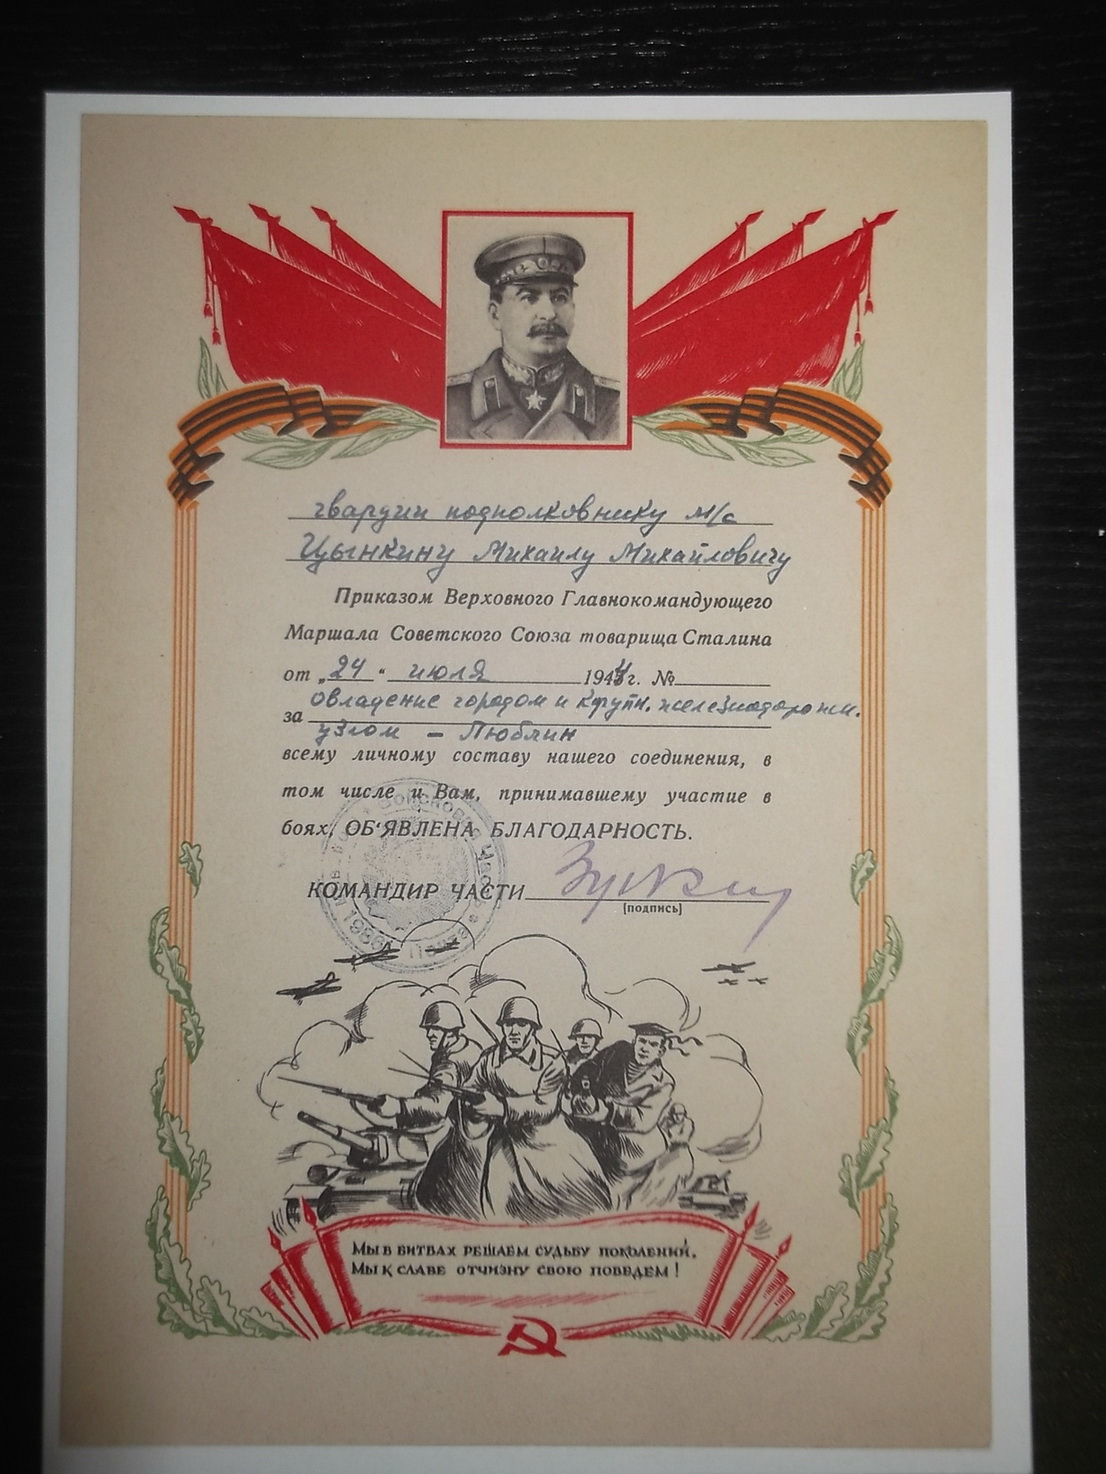 гвардии подполковнику м/с
Цынкину Михаилу Михайловичу
Приказом Верховного Главнокомандующего
Маршала Советского Союза товарища Сталина
от „24" июля 1944г. №
за овладение городом и крупн. железнодорожн.
узлом – Люблин
всему личному составу нашего соединения, в
том числе и Вам, принимавшему участие в
боях, ОБ'ЯВЛЕНА БЛАГОДАРНОСТЬ.
КОМАНДИР ЧАСТИ
(подпись)
Войсковая часть
МЫ В БИТВАХ РЕШАЕМ СУДЬБУ ПОКОЛЕНИЙ,
МЫ К СЛАВЕ ОТЧИЗНУ СВОЮ ПОВЕДЕМ!